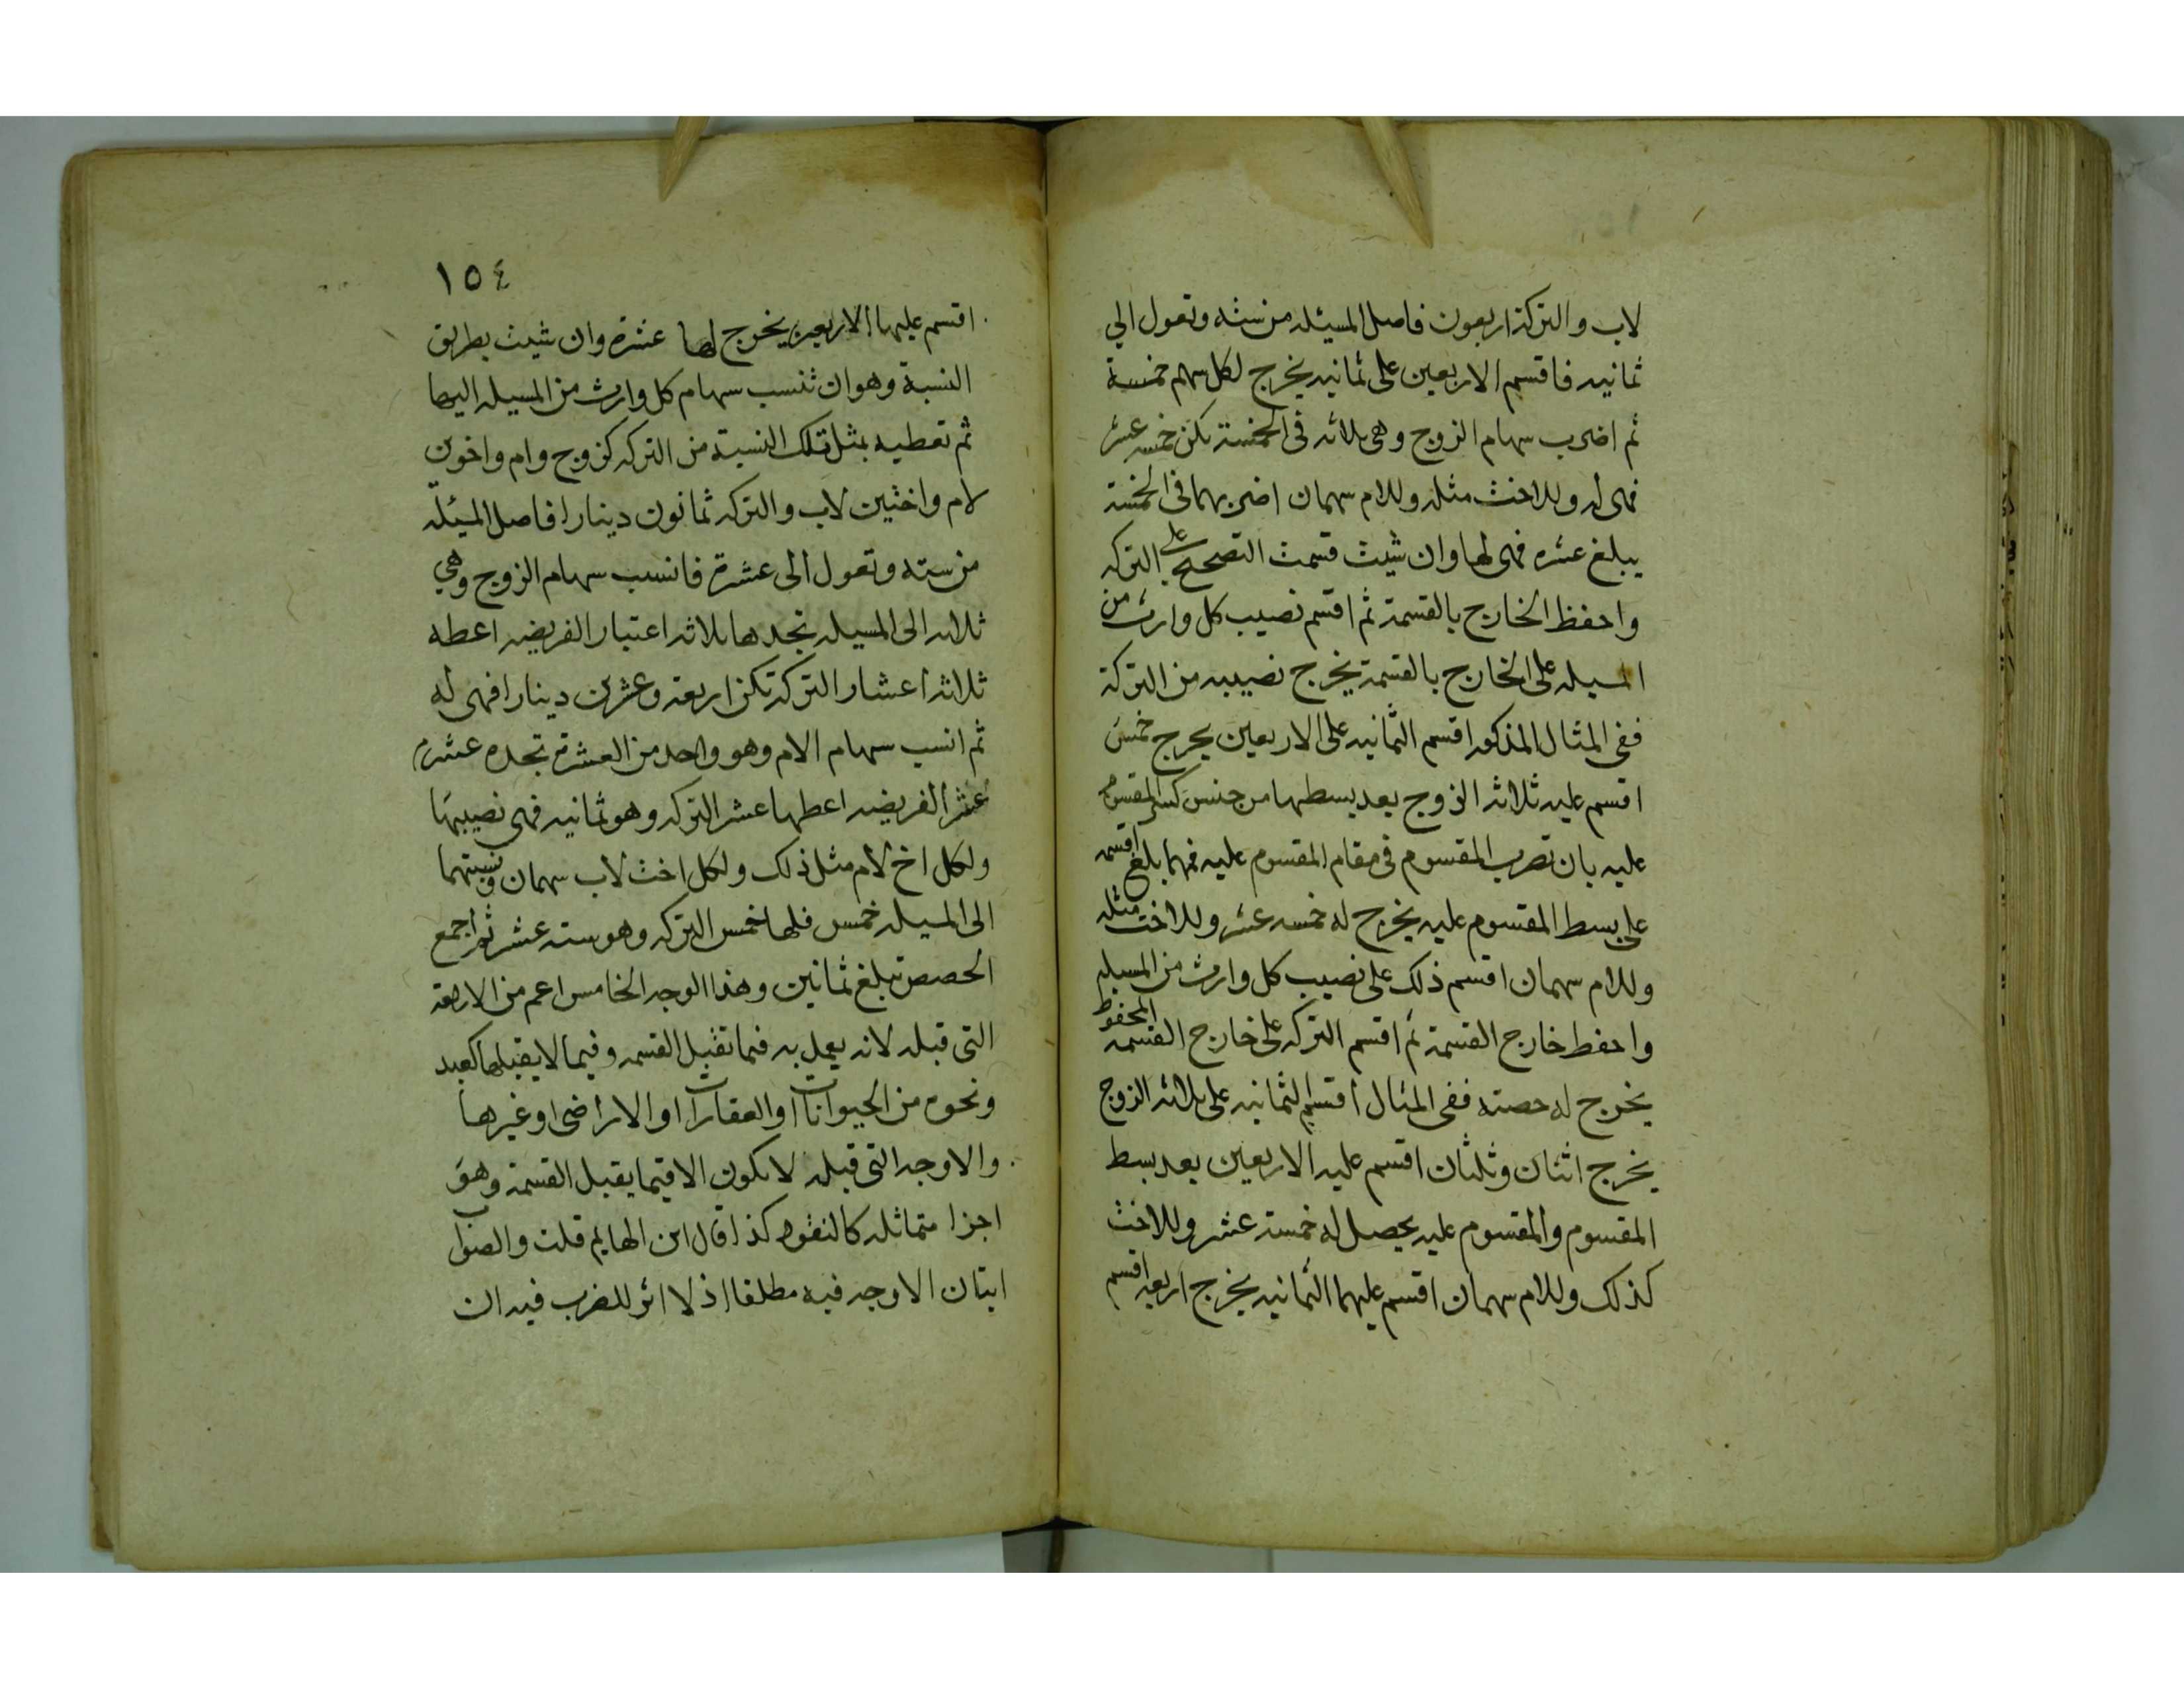 لاب والتركة اربعون فاصل المسئله من سته وتعول الي
ثمانيه فاقسم الاربعين على ثمانيه يخرج لكل سهم خمسة
ثم اضرب سهام الزوج وهى ثلاثه فى الخمسة تكن خمسه عشر
فهى له وللاخت مثله وللام سهمان اضربهما فى الخمسة
يبلغ عشره فهى لها وان شيت قسمت التصحيح على التركه
واحفظ الخارج بالقسمة ثم اقسم نصيب كل وارث من
المسيله على الخارج بالقسمة يخرج نصيبه من التركة
ففى المثال المذكور اقسم الثمانيه على الاربعين يخرج خمس
اقسم عليه ثلاثة الزوج بعد بسطها من جنس كسر المقسوم
عليه بان تضرب المقسوم فى مقام المقسوم عليه فهما بلغ اقسمه
على بسط المقسوم عليه يخرج له خمسه عشر وللاخت مثله
وللام سهمان اقسم ذلك على نصيب كل وارث من المسيله
واحفط خارج القسمة ثم اقسم التركه على خارج القسمه المحفوظ
يخرج له حصته ففى المثال اقسم الثمانيه على ثلاثه الزوج
يخرج اثنان وثلثان اقسم عليه الاربعين بعد بسط
المقسوم والمقسوم عليه يحصل له خمسة عشر وللاخت
كذلك وللام سهمان اقسم عليهما الثمانيه يخرج اربعه اقسم
١٥٤
اقسم عليها الاربعين يخرج لها عشرة وان شيت بطريق
النسبة وهو ان تنسب سهام كل وارث من المسيله اليها
ثم تعطيه بمثل تلك النسبة من التركه كزوج وام واخوين
لام واختين لاب والتركه ثمانون دينارا فاصل المسئله
من سته وتعول الى عشرة فانسب سهام الزوج وهي
ثلاثه الى المسيله تجدها ثلاثه اعتبار الفريضه اعطه
ثلاثه اعشار التركه تكن اربعه وعشرين دينارا فهى له
ثم انسب سهام الام وهو واحد من العشرة تجده عشرا
عشر الفريضه اعطها عشر التركه وهو ثمانيه فهى نصيبها
ولكل اخ لام مثل ذلك ولكل اخت لاب سهمان ونسبتهما
الى المسيله خمس فلها خمس التركه وهو سته عشر ثم اجمع
الحصص تبلغ ثمانين وهذا الوجه الخامس اعم من الاربعة
التى قبله لانه يعمل به فيما تقبل القسمه وفيما لا يقبلها كعبد
ونحوه من الحيوانات او العقارات او الاراضى او غيرها
والاوجه التى قبله لا يكون الا فيما يقبل القسمة وهو
اجزا متماثله كالنقود كذا قال ابن الهايم قلت والصواب
اتيان الاوجه فيه مطلقا اذ لا اثر للضرب فيه ان